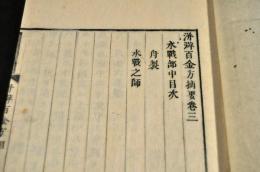 洴澼百金方摘要卷三
水戰部中目次
舟製
水戰之師